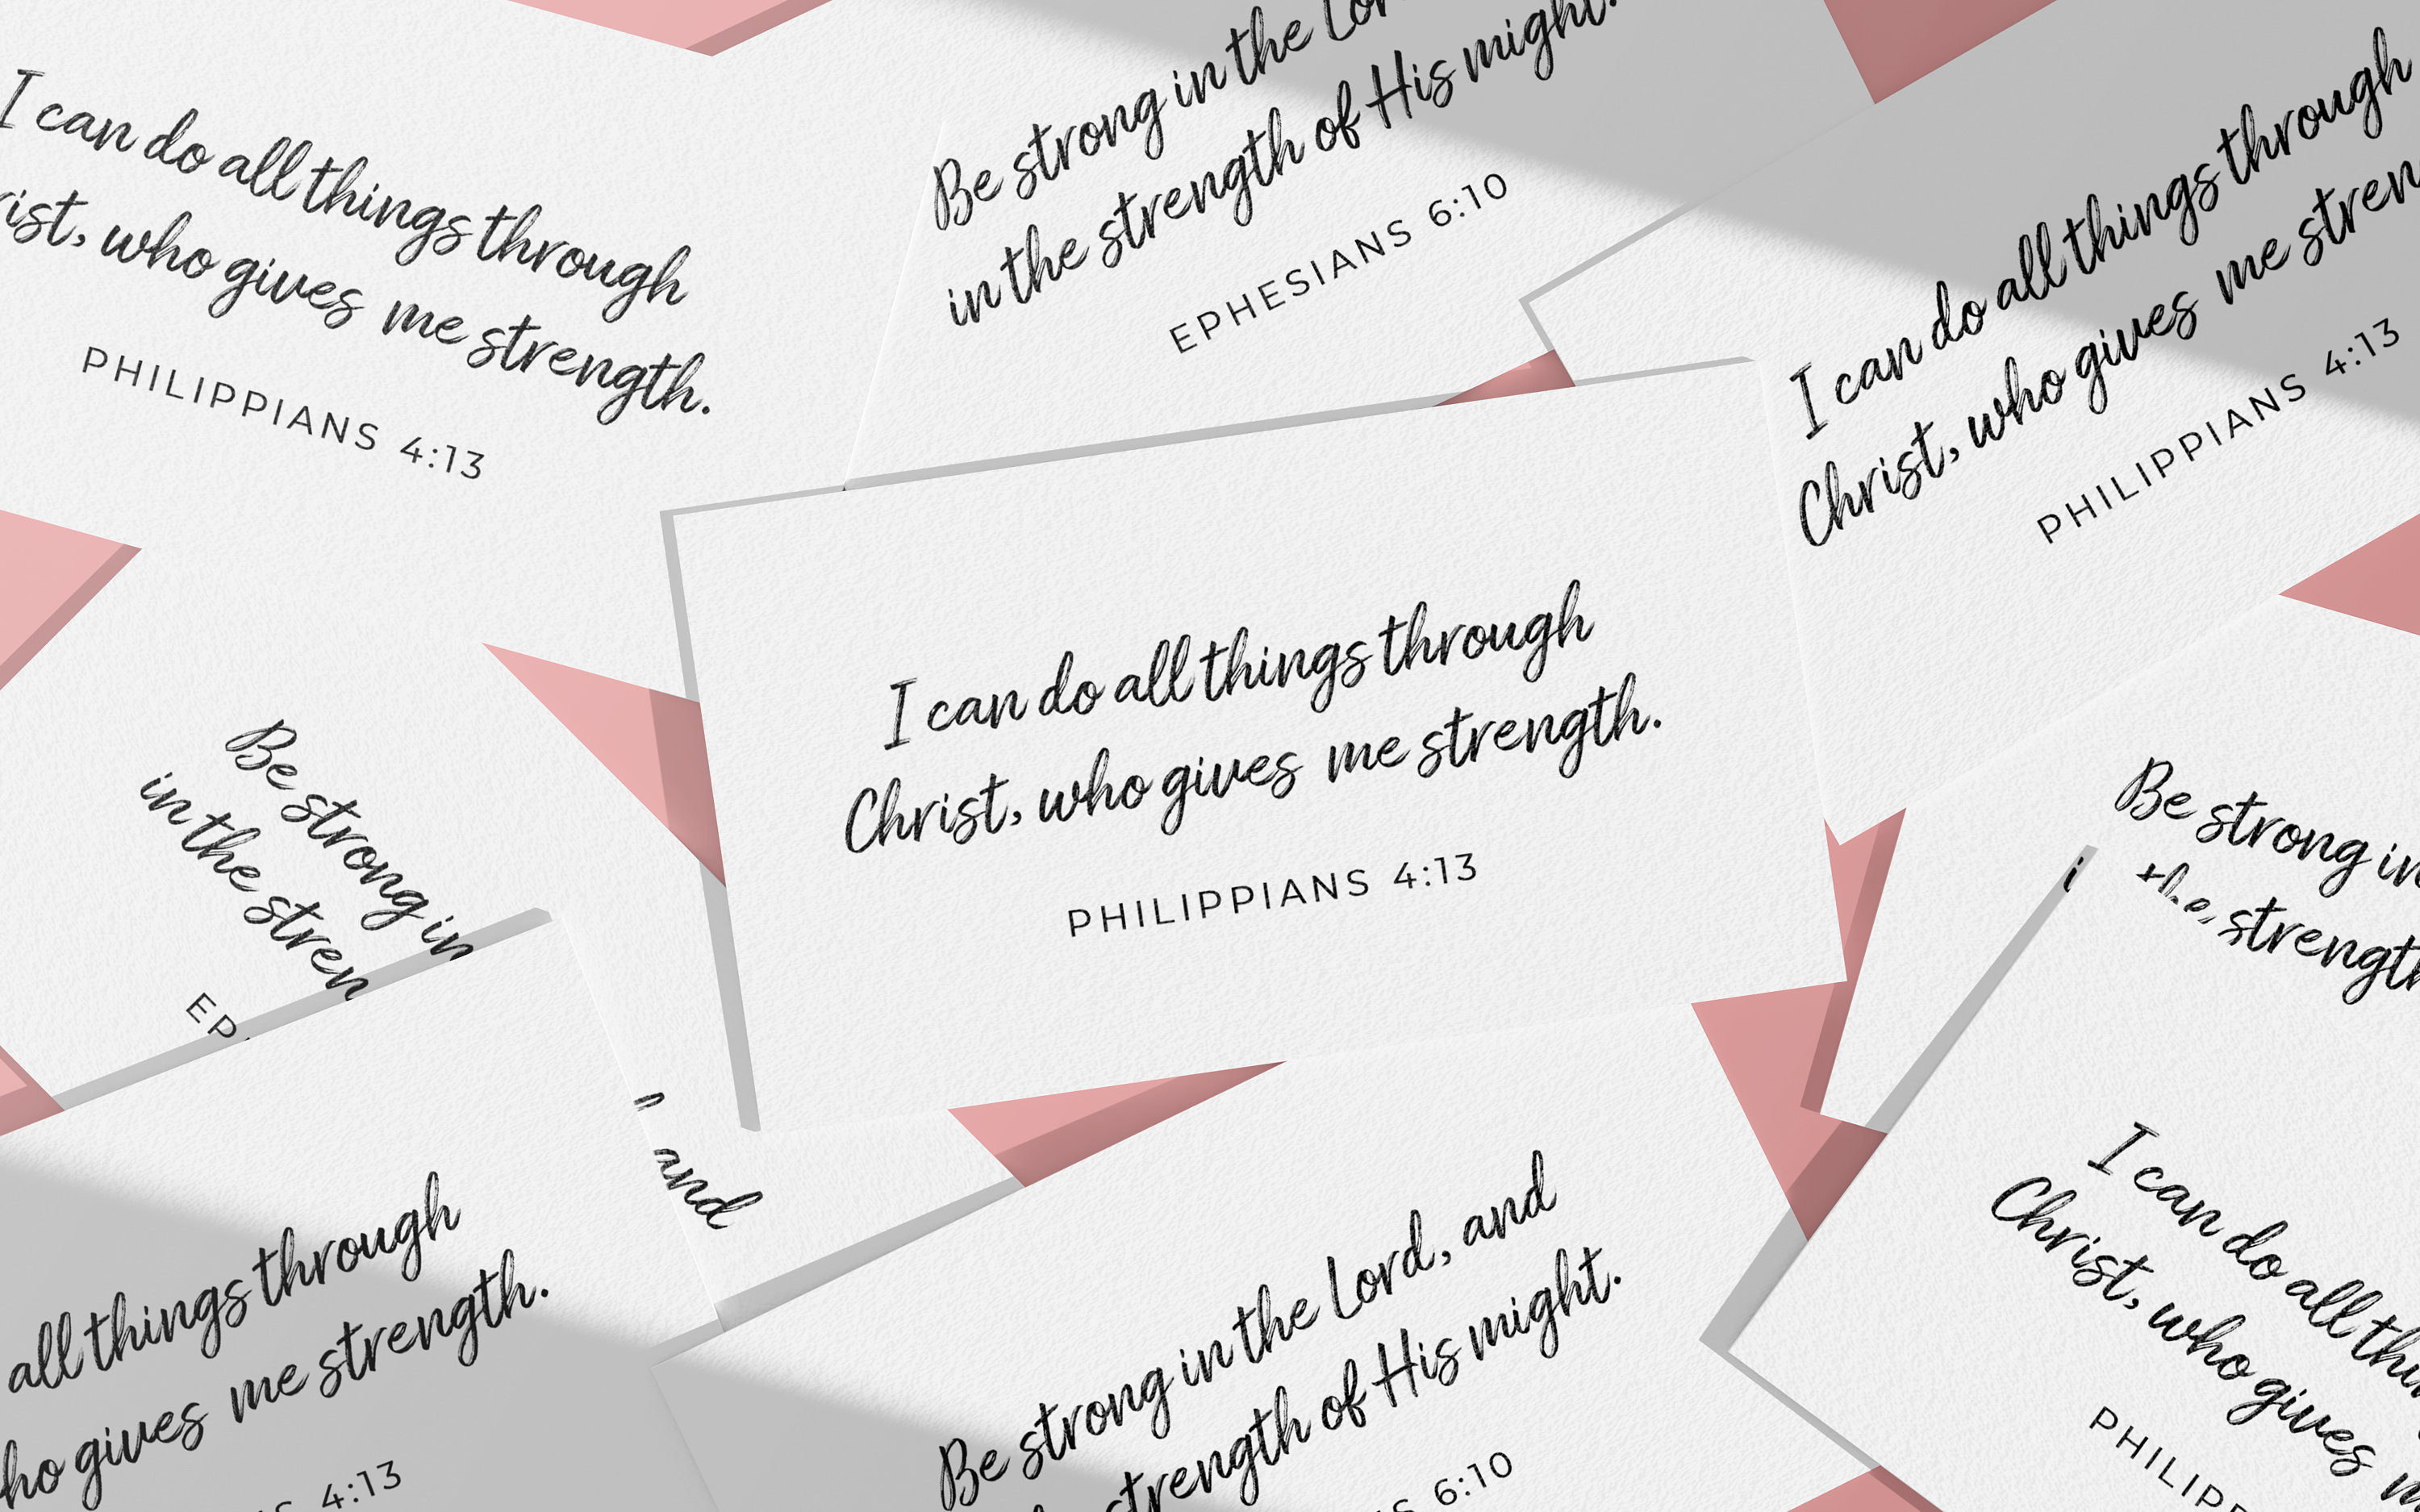 I can do all things through
rist, who gives me strength.
PHILIPPIANS 4:13
Be strong in the Lor
in the strength of His might.
EPHESIANS 6:10
I can do all things through
Christ, who gives me stren
PHILIPPIANS 4:13
I can do all things through
Christ, who gives me strength.
PHILIPPIANS 4:13
Be strong in
in the stren
EP
and
Be strong in
i the strength
all things through
ho gives me strength.
S 4:13
Be strong in the Lord, and
strength of His might.
S 6:10
I can do all thin
Christ, who gives m
PHILIPP